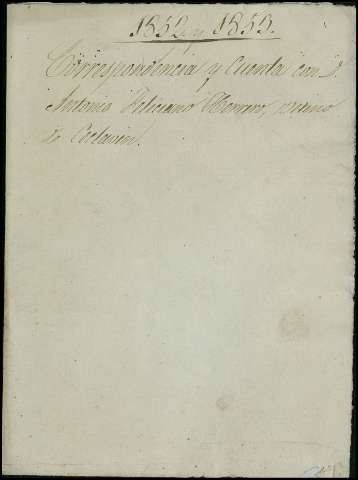 1852 y 1853.
Correspondencia y Cuenta con D.
Antonio Feliciano Moreno, vecino
de Ceclavin.